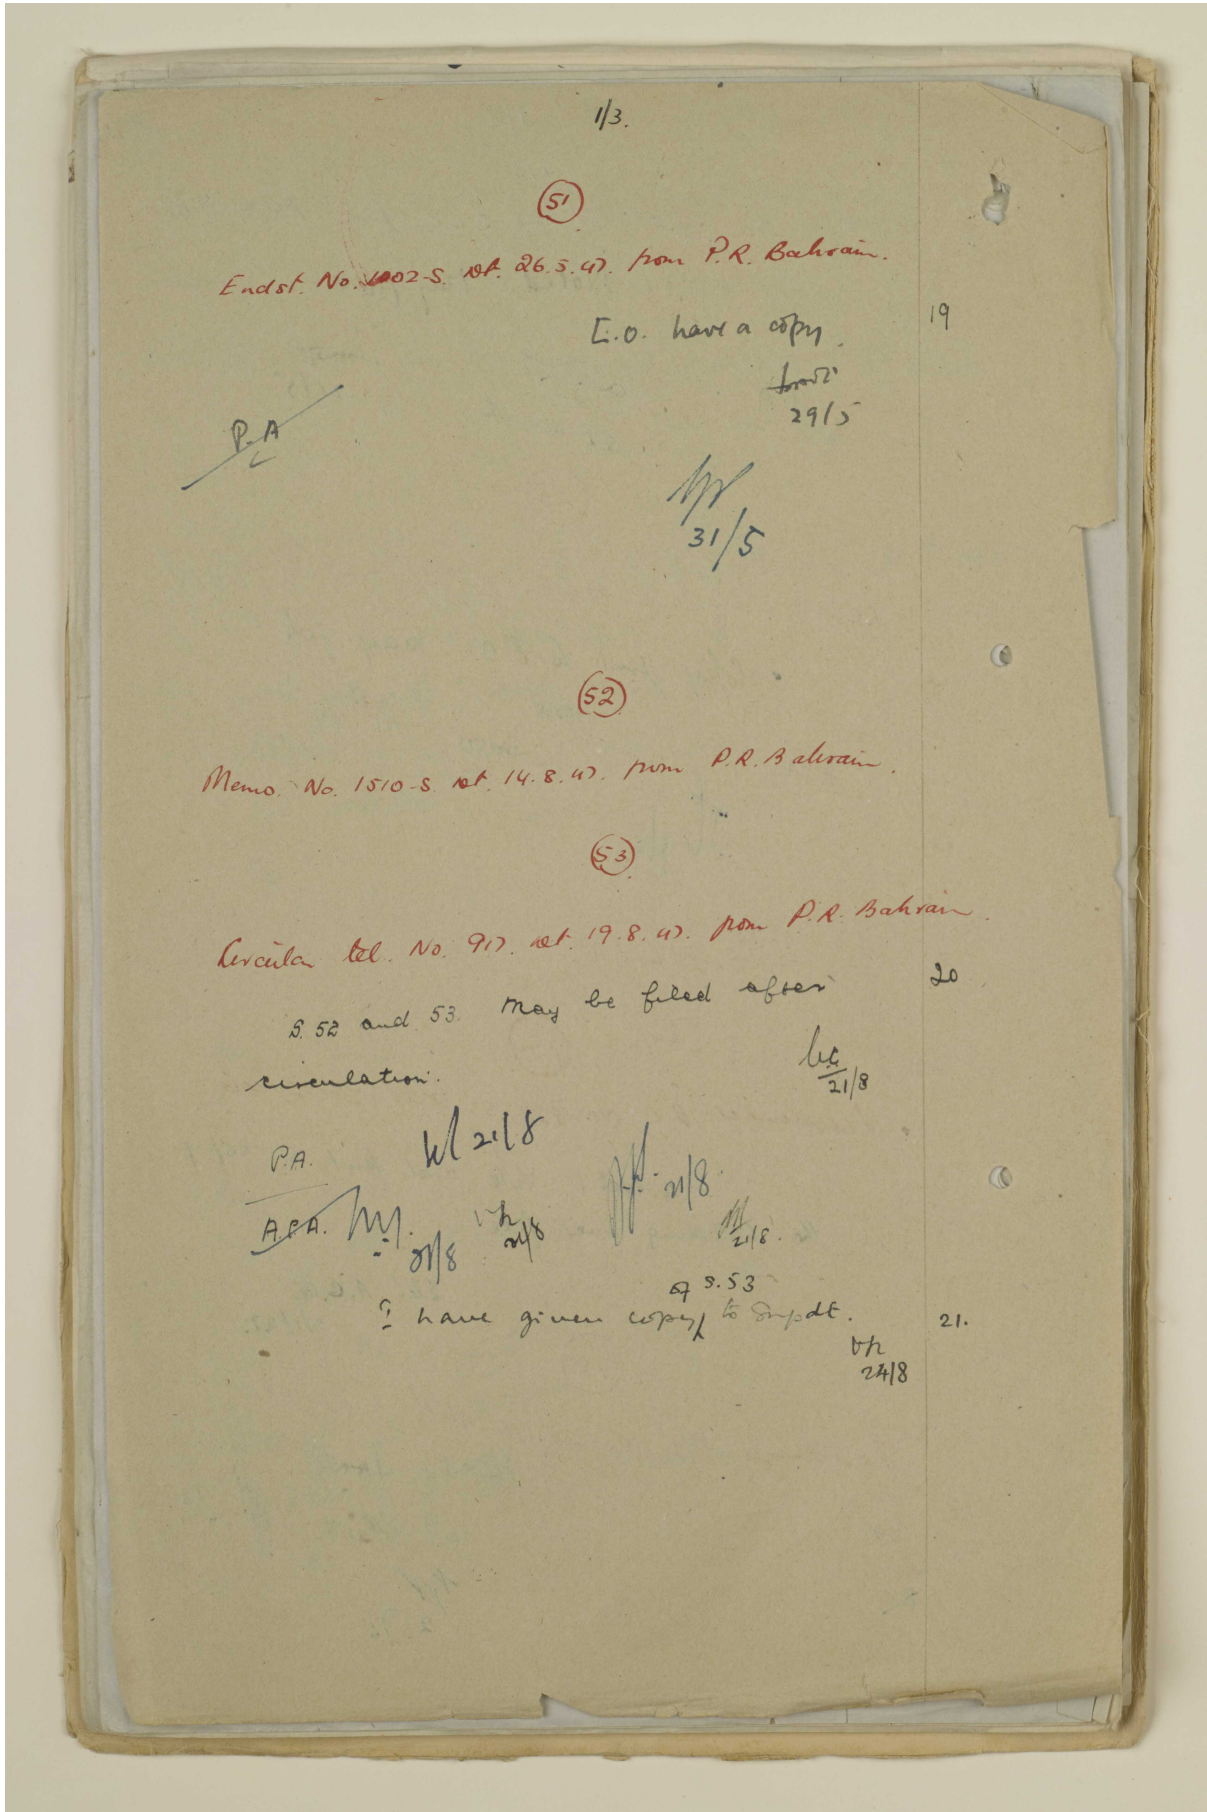 1/3.
51
Endst. No. 1002-S. dt. 26.5.47. from P.R. Bahrain.
I.O. have a copy.
19
29/5
P.A
31/5
52
Memo. No. 1510-S. dt. 14.8.47. from P.R. Bahrain.
53
Circular tel. No. 917. dt. 19.8.47. from P.R. Bahrain.
S. 52 and 53. May be filed after
20
circulation.
21/8
P.A.
21/8
21/8
A.P.A.
21/8
21/8
21/8.
of S.53
? have given copy to Supdt.
21.
24/8